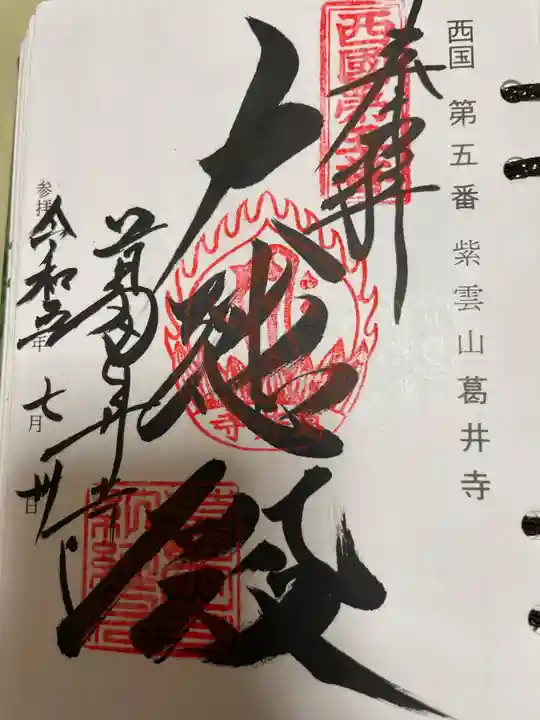 西国 第五番 紫雲山葛井寺
奉拝
西國第五番
大悲殿
葛井寺
参拝 令和五年 七月 卅日